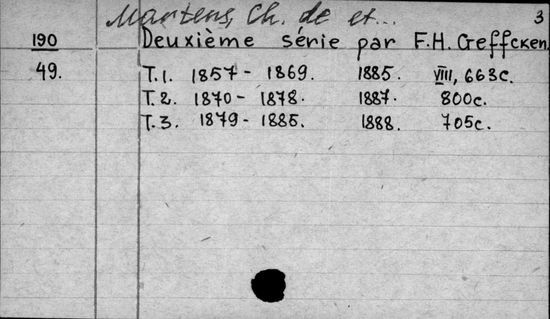 Martens, Ch. de et... 3
190 Deuxième série par F.H. Geffcken.
49. T.1. 1857 - 1869. 1885. VIII, 663c.
T.2. 1870 - 1878. 1887. 800c.
T.3. 1879 - 1885. 1888. 705c.